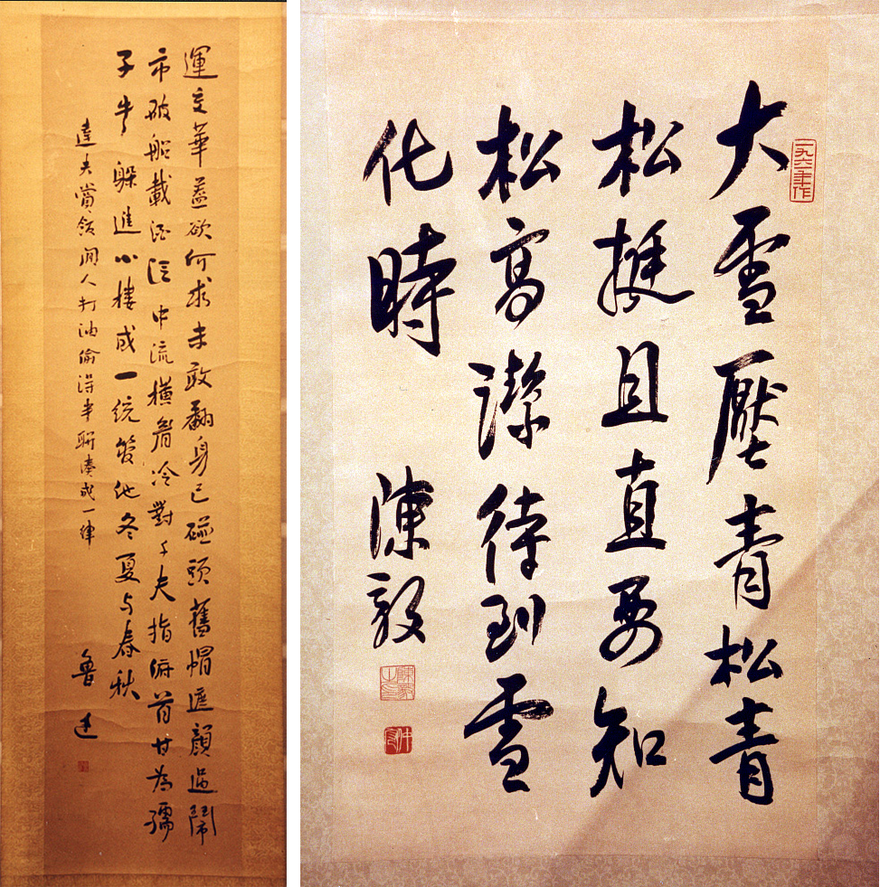 運交華蓋欲何求未敢翻身已碰頭舊帽遮顏過鬧
市破船載酒泛中流橫眉冷對千夫指俯首甘為孺
子牛躲進小樓成一統管他冬夏与春秋
達夫賞飯閒人打油偷得半聯湊成一律
魯迅
大雪壓青松青
松挺且直要知
松高潔待到雪
化時 陳毅